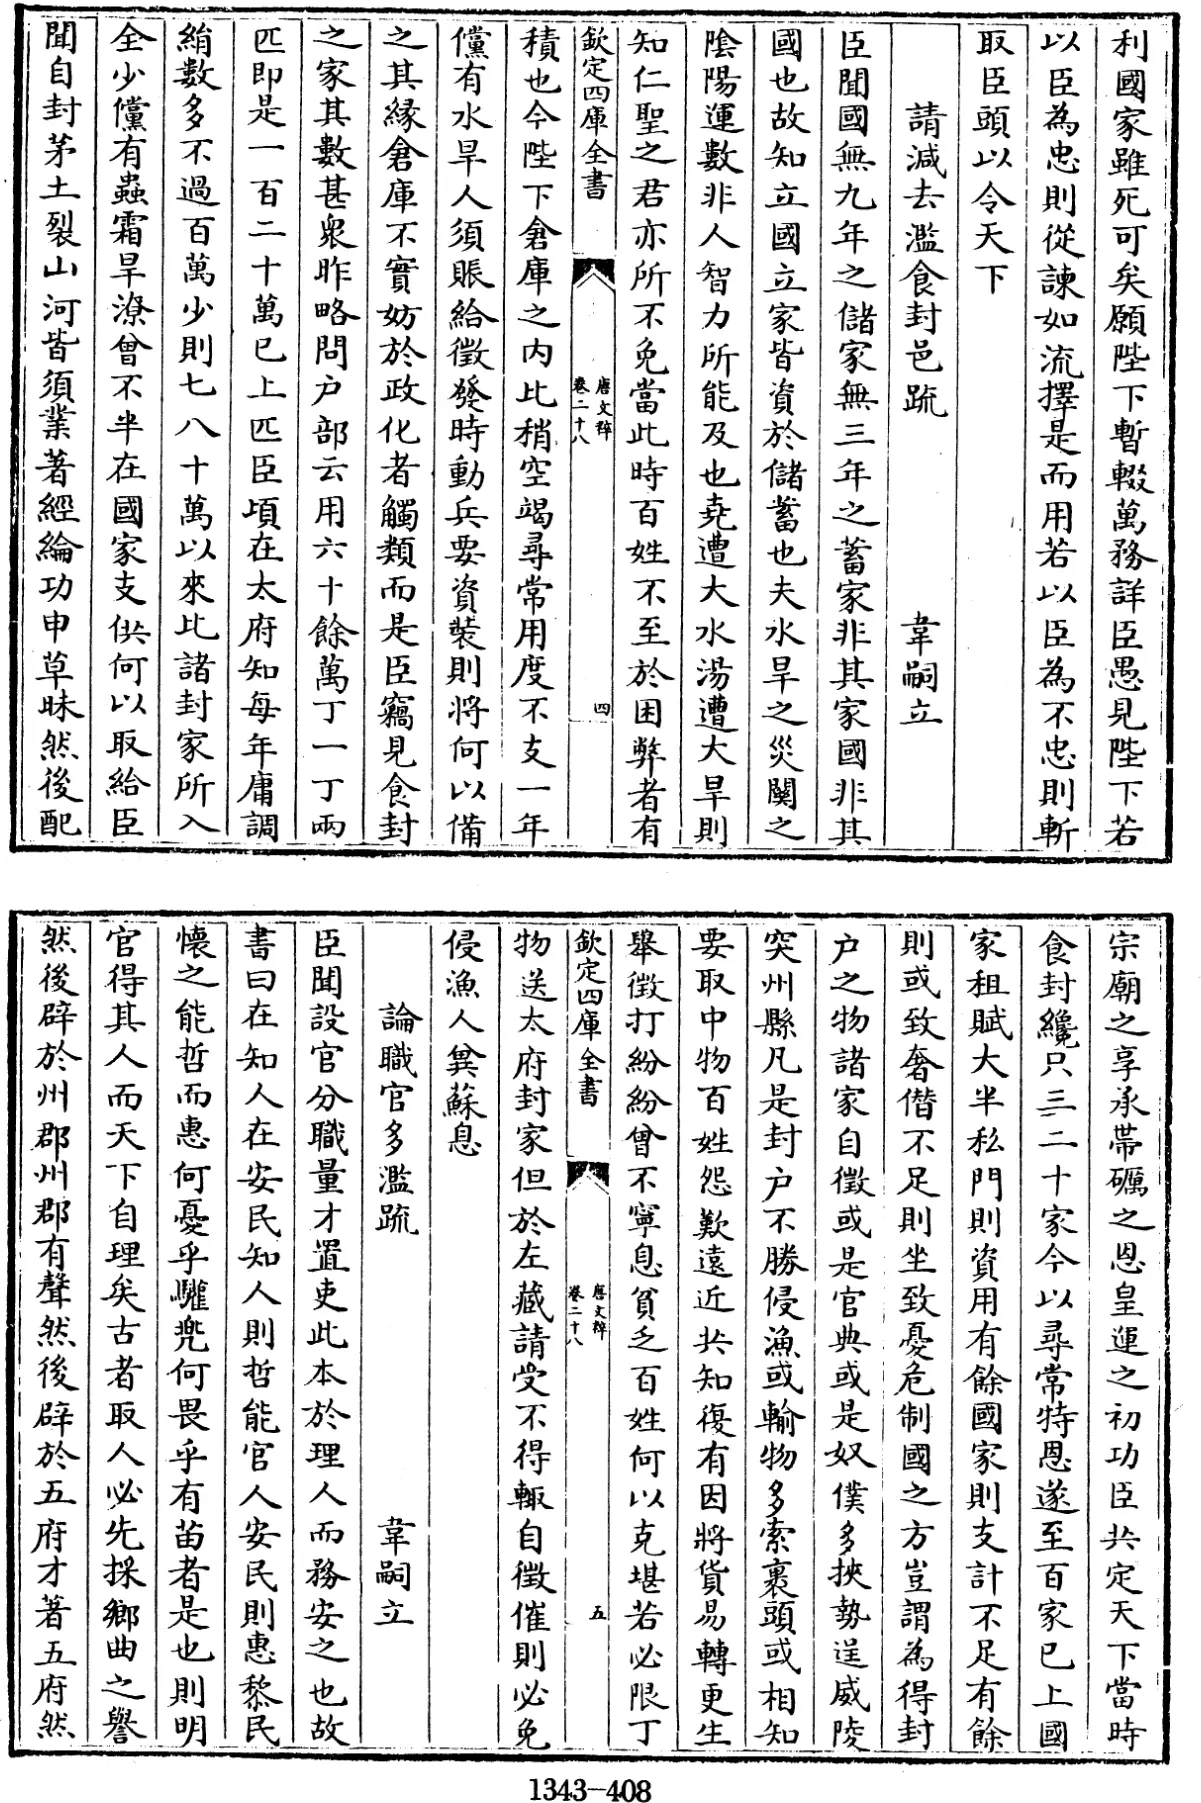 利國家雖死可矣願陛下暫輟萬務詳臣愚見陛下若
以臣為忠則從諫如流擇是而用若以臣為不忠則斬
取臣頭以令天下
請減去濫食封邑疏 韋嗣立
臣聞國無九年之儲家無三年之蓄家非其家國非其
國也故知立國立家皆資於儲蓄也夫水旱之災關之
陰陽運數非人智力所能及也堯遭大水湯遭大旱則
知仁聖之君亦所不免當此時百姓不至於困弊者有
欽定四庫全書 唐文粹 卷二十八 四
積也今陛下倉庫之内比稍空竭尋常用度不支一年
儻有水旱人須賑給徵發時動兵要資裝則將何以備
之其緣倉庫不實妨於政化者觸類而是臣竊見食封
之家其數甚衆昨略問户部云用六十餘萬丁一丁兩
匹即是一百二十萬已上匹臣頃在太府知每年庸調
絹數多不過百萬少則七八十萬以來比諸封家所入
全少儻有蟲霜旱潦曾不半在國家支供何以取給臣
聞自封茅土裂山河皆須業著經綸功申草昧然後配
宗廟之享承帶礪之恩皇運之初功臣共定天下當時
食封纔只三二十家今以尋常特恩遂至百家已上國
家租賦大半私門則資用有餘國家則支計不足有餘
則或致奢僭不足則坐致憂危制國之方豈謂為得封
户之物諸家自徵或是官典或是奴僕多挾勢逞威陵
突州縣凡是封户不勝侵漁或輸物多索裹頭或相知
要取中物百姓怨歎遠近共知復有因將貨易轉更生
舉徵打紛紛曾不寧息貧乏百姓何以克堪若必限丁
欽定四庫全書 唐文粹 卷二十八 五
物送太府封家但於左藏請受不得輙自徵催則必免
侵漁人兾蘇息
論職官多濫疏 韋嗣立
臣聞設官分職量才置吏此本於理人而務安之也故
書曰在知人在安民知人則哲能官人安民則惠黎民
懐之能哲而惠何憂乎驩兜何畏乎有苗者是也則明
官得其人而天下自理矣古者取人必先採鄉曲之譽
然後辟於州郡州郡有聲然後辟於五府才著五府然
1343-408